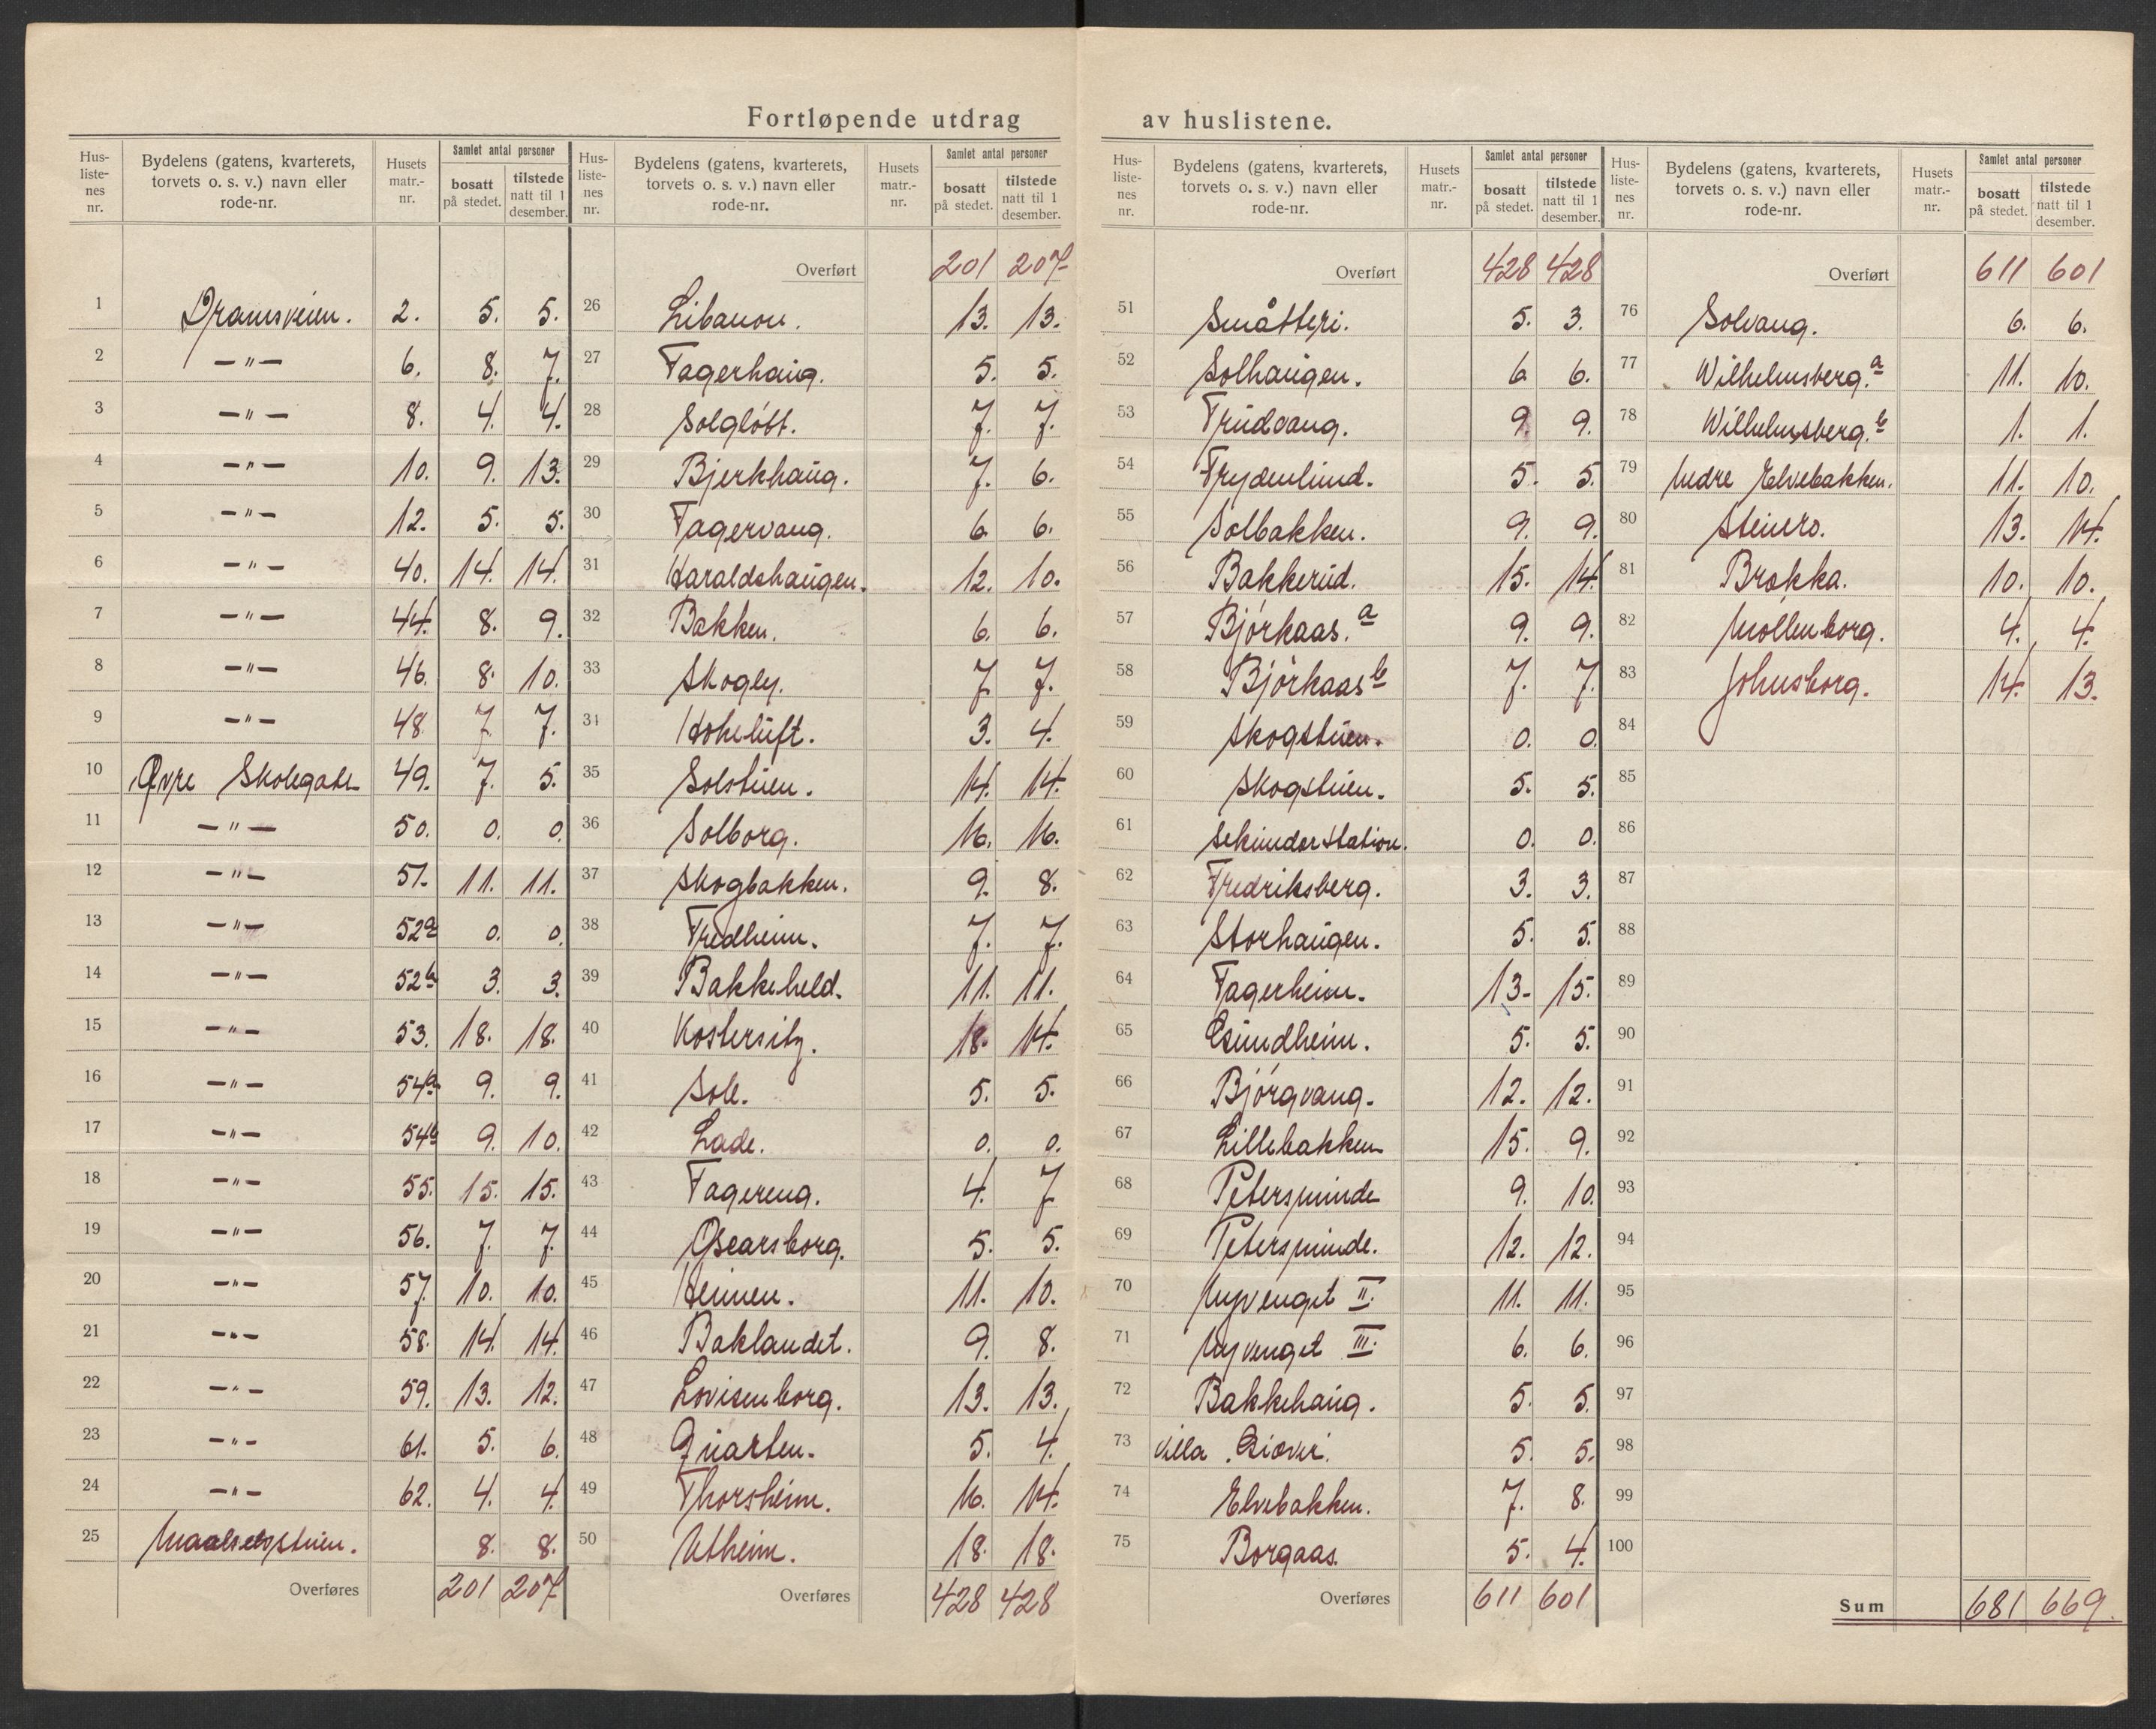 Fortløpende utdrag av huslistene.
Hus-listenes nr. | Bydelens (gatens, kvarterets, torvets o. s. v.) navn eller rode-nr. | Husets matr.-nr. | Samlet antal personer bosatt på stedet. | tilstede natt til 1 desember.
1 Dramsveien. 2. 5. 5.
2 —"— 6. 8. 7.
3 —"— 8. 4. 4.
4 —"— 10. 9. 13.
5 —"— 12. 5. 5.
6 —"— 40. 14. 14.
7 —"— 44. 8. 9.
8 —"— 46. 8. 10.
9 —"— 48. 7. 7.
10 Øvre Skolegate 49. 7. 5.
11 —"— 50. 0. 0.
12 —"— 51. 11. 11.
13 —"— 52a 0. 0.
14 —"— 52b 3. 3.
15 —"— 53. 18. 18.
16 —"— 54a 9. 9.
17 —"— 54b 9. 10.
18 —"— 55. 15. 15.
19 —"— 56. 7. 7.
20 —"— 57. 10. 10.
21 —"— 58. 14. 14.
22 —"— 59. 13. 12.
23 —"— 61. 5. 6.
24 —"— 62. 4. 4.
25 Maalselvstuen. 8. 8.
Overføres 201 207
Hus-listenes nr. | Bydelens (gatens, kvarterets, torvets o. s. v.) navn eller rode-nr. | Husets matr.-nr. | Samlet antal personer bosatt på stedet. | tilstede natt til 1 desember.
Overført 201 207
26 Libanon. 13. 13.
27 Fagerhaug. 5. 5.
28 Solgløtt. 7. 7.
29 Bjerkhaug. 7. 6.
30 Fagervang. 6. 6.
31 Haraldshaugen. 12. 10.
32 Bakken. 6. 6.
33 Skogly. 7. 7.
34 Hoheluft. 3. 4.
35 Solstuen. 14. 14.
36 Solborg. 16. 16.
37 Skogbakken. 9. 8.
38 Fredheim. 7. 7.
39 Bakkeheld. 11. 11.
40 Kostersitz. 18. 14.
41 Sole. 5. 5.
42 Lade. 0. 0.
43 Fagereng. 4. 7
44 Oscarsborg. 5. 5.
45 Heimen. 11. 10.
46 Baklandet. 9. 8.
47 Lovisenborg. 13. 13.
48 Qvarten. 5. 4.
49 Thorsheim. 16. 14.
50 Utheim. 18. 18.
Overføres 428 428
Hus-listenes nr. | Bydelens (gatens, kvarterets, torvets o. s. v.) navn eller rode-nr. | Husets matr.-nr. | Samlet antal personer bosatt på stedet. | tilstede natt til 1 desember.
Overført 428 428
51 Småtteri. 5. 3.
52 Solhaugen. 6 6.
53 Trudvang. 9. 9.
54 Frydenlund. 5. 5.
55 Solbakken. 9. 9.
56 Bakkerud. 15. 14.
57 Bjørkaas. a 9. 9.
58 Bjørkaas b 7. 7.
59 Skogstuen. 0. 0.
60 Skogstuen. 5. 5.
61 Sekundærstation. 0. 0.
62 Fredriksberg. 3. 3.
63 Storhaugen. 5. 5.
64 Fagerheim. 13. 15.
65 Gundheim. 5. 5.
66 Bjørgvang. 12. 12.
67 Lillebakken 15. 9.
68 Petersminde 9. 10.
69 Petersminde. 12. 12.
70 Nyvenget II. 11. 11.
71 Nyvenget III. 6. 6.
72 Bakkehaug. 5. 5.
73 Villa 5. 5.
74 Elvebakken. 7. 8.
75 Borgaas. 5. 4.
Overføres 611 601
Hus-listenes nr. | Bydelens (gatens, kvarterets, torvets o. s. v.) navn eller rode-nr. | Husets matr.-nr. | Samlet antal personer bosatt på stedet. | tilstede natt til 1 desember.
Overført 611 601
76 Solvang. 6. 6.
77 Wilhelmsberg. a 11. 10.
78 Wilhelmsberg. b 1. 1.
79 Nedre Elvebakken. 11. 10.
80 Steinero. 13. 14.
81 Brokka. 10. 10.
82 Möllenborg. 4. 4.
83 Johnsborg. 14. 13.
84
85
86
87
88
89
90
91
92
93
94
95
96
97
98
99
100
Sum 681 669.